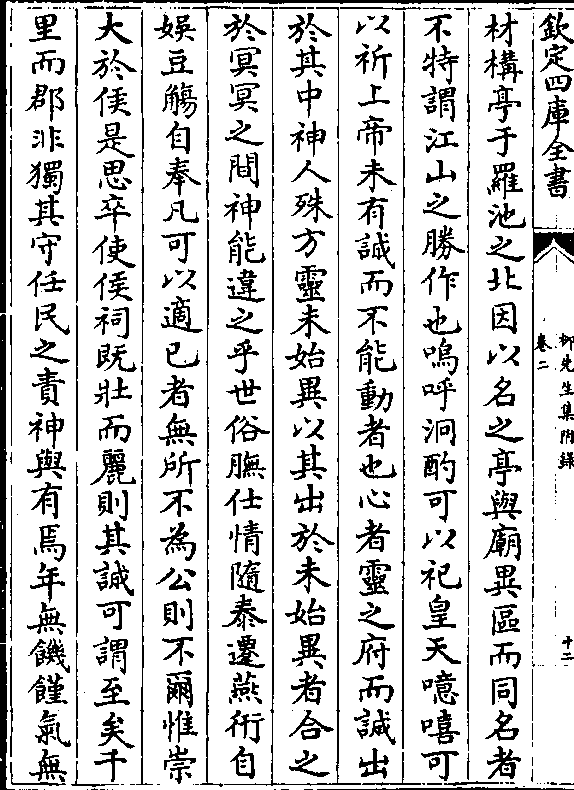 欽定四庫全書
柳先生集附録
卷二
十二
材構亭于羅池之北因以名之亭與廟異區而同名者
不特謂江山之勝作也嗚呼泂酌可以祀皇天噫嘻可
以祈上帝未有誠而不能動者也心者靈之府而誠出
於其中神人殊方靈未始異以其出於未始異者合之
於冥冥之間神能違之乎世俗膴仕情隨泰遷燕衎自
娯豆觴自奉凡可以適已者無所不為公則不爾惟崇
大於侯是思卒使侯祠既壯而麗則其誠可謂至矣千
里而郡非獨其守任民之責神與有焉年無饑饉氣無